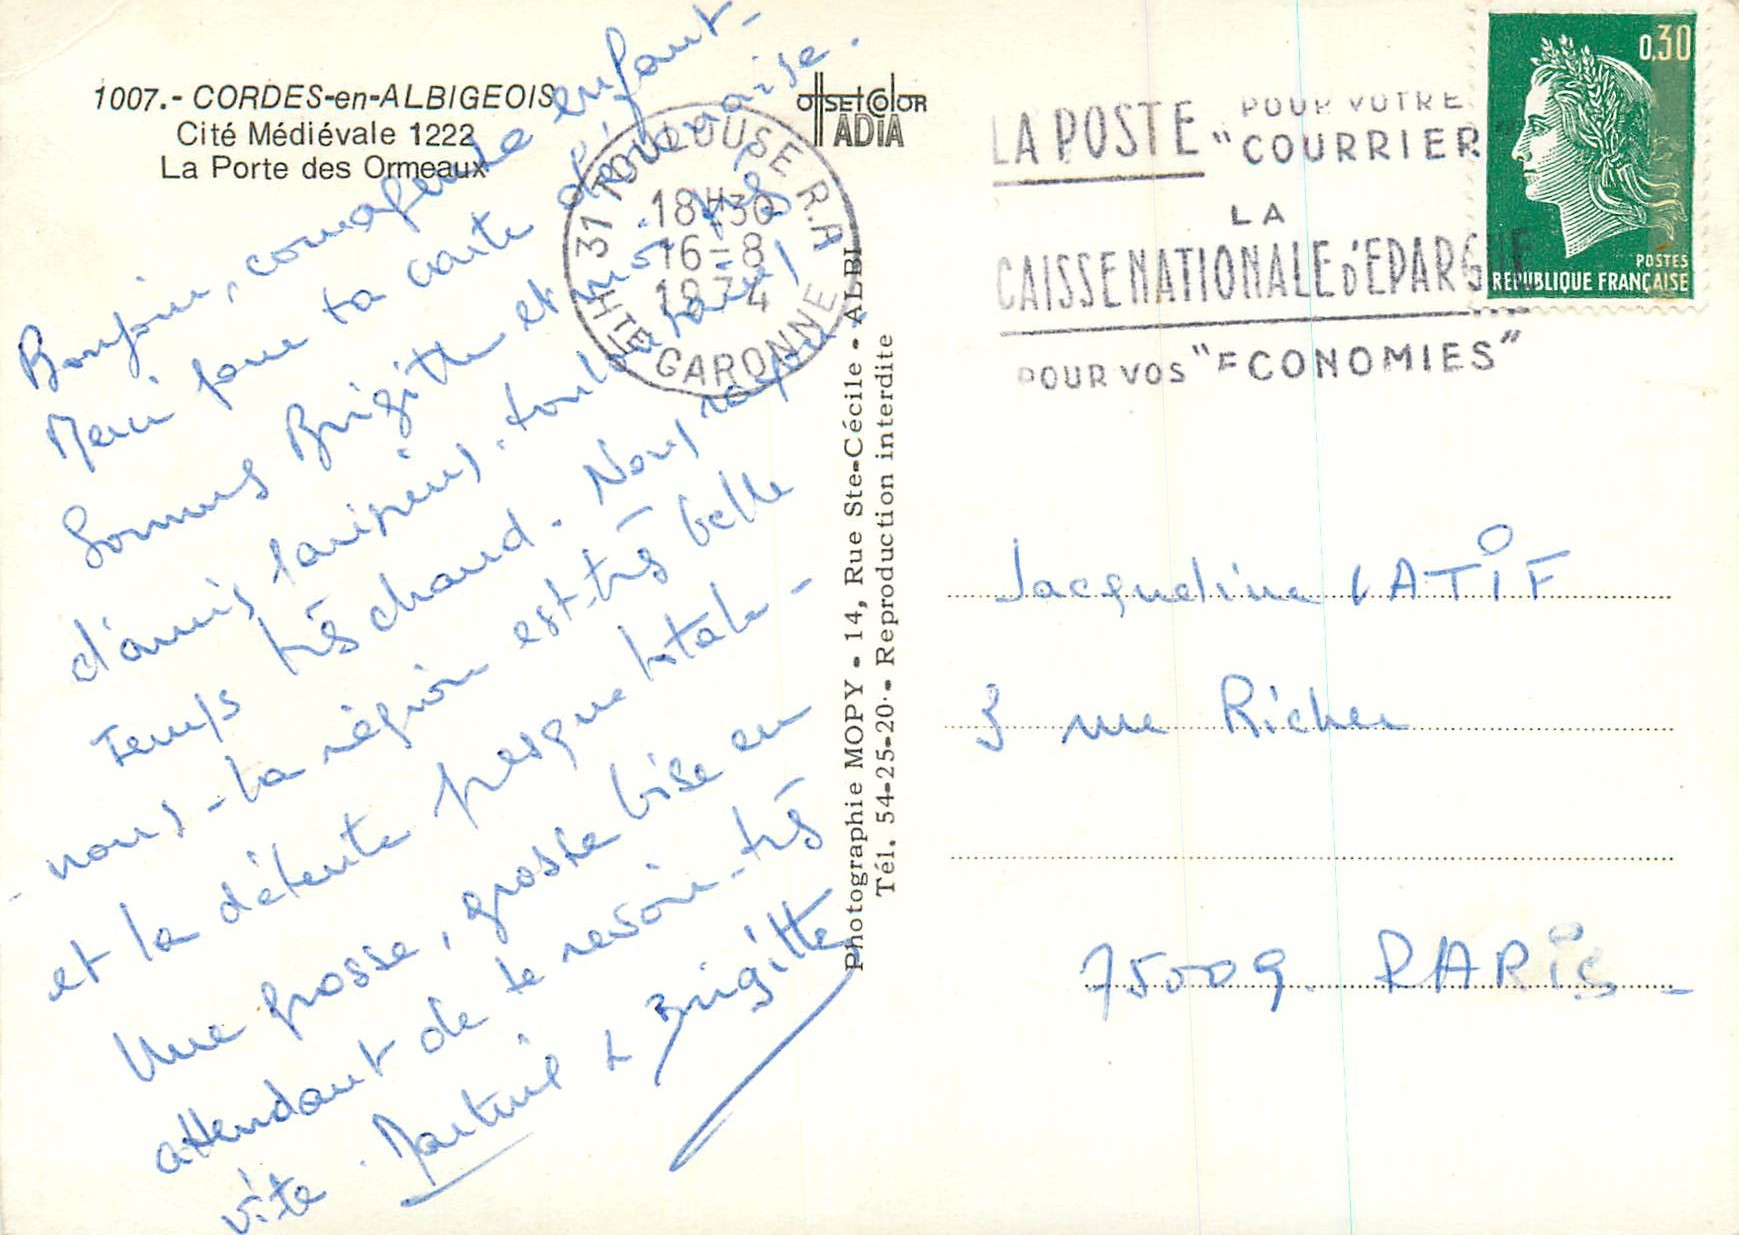 1007.- CORDES-en-ALBIGEOIS
Cité Médiévale 1222
La Porte des Ormeaux
offset color
ADIA
31 TOULOUSE R.P.
18H30
16-8
1974
HTE GARONNE
LA POSTE POUR VOTRE
"COURRIER"
LA
CAISSE NATIONALE D'EPARGNE
POUR VOS "ECONOMIES"
0,30
POSTES
REPUBLIQUE FRANÇAISE
Bonjour, enfant-
Merci pour ta carte
Sommes Brigitte et moi près
d'amis parisiens. toulousains!
Temps très chaud. Nous
nous - la région est très belle
et la détente presque totale -
Une grosse, grosse bise en
attendant de te revoir - très
vite. Martine & Brigitte
Photographie MOPY - 14, Rue Ste-Cécile - ALBI
Tél. 54-25-20 - Reproduction interdite
Jacqueline LATIF
3 rue Richer
75009. PARIS -